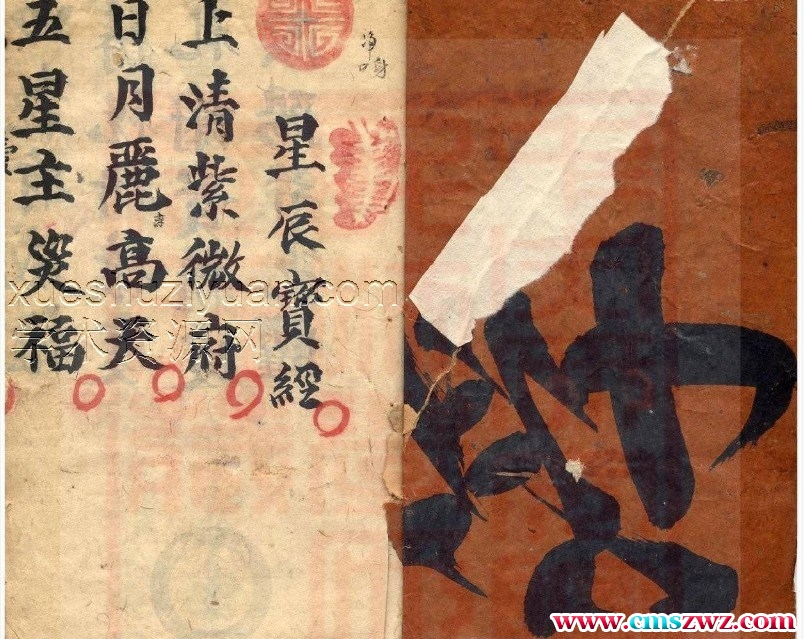 星辰寶經
上清紫微府
日月麗高天
五星主災福
xueshuziyuan.com
学术资源网
www.cmszwz.com